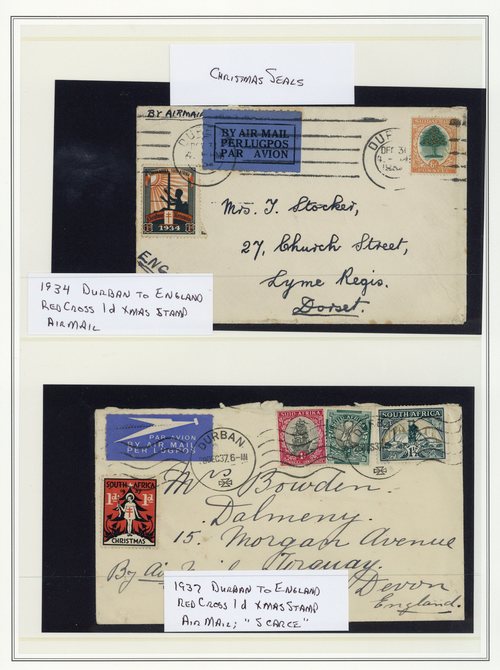 CHRISTMAS SEALS
BY AIRMAIL
BY AIR MAIL
PER LUGPOS
PAR AVION
DUR
DEC 3
DUR
DEC 31
1934
Mrs. J. Stocker,
27, Church Street,
Lyme Regis.
Dorset.
ENG
1934 DURBAN TO ENGLAND
RED CROSS 1d XMAS STAMP
AIRMAIL
PAR AVION
BY AIR MAIL
PER LUGPOS
DURBAN
DEC37.6-M
SUID-AFRIKA
SOUTH AFRICA
1½
SOUTH AFRICA
1d 1d
CHRISTMAS
Mrs Bowden,
Dalmeny,
15, Morgan Avenue
Torquay,
By Air
Devon
England.
1937 DURBAN TO ENGLAND
RED CROSS 1d XMAS STAMP
AIR MAIL; "SCARCE"